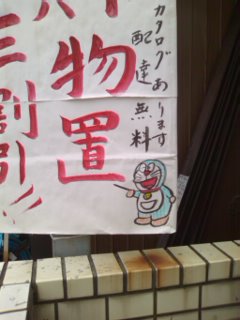 カタログあります
配達無料
物置
三割引!!